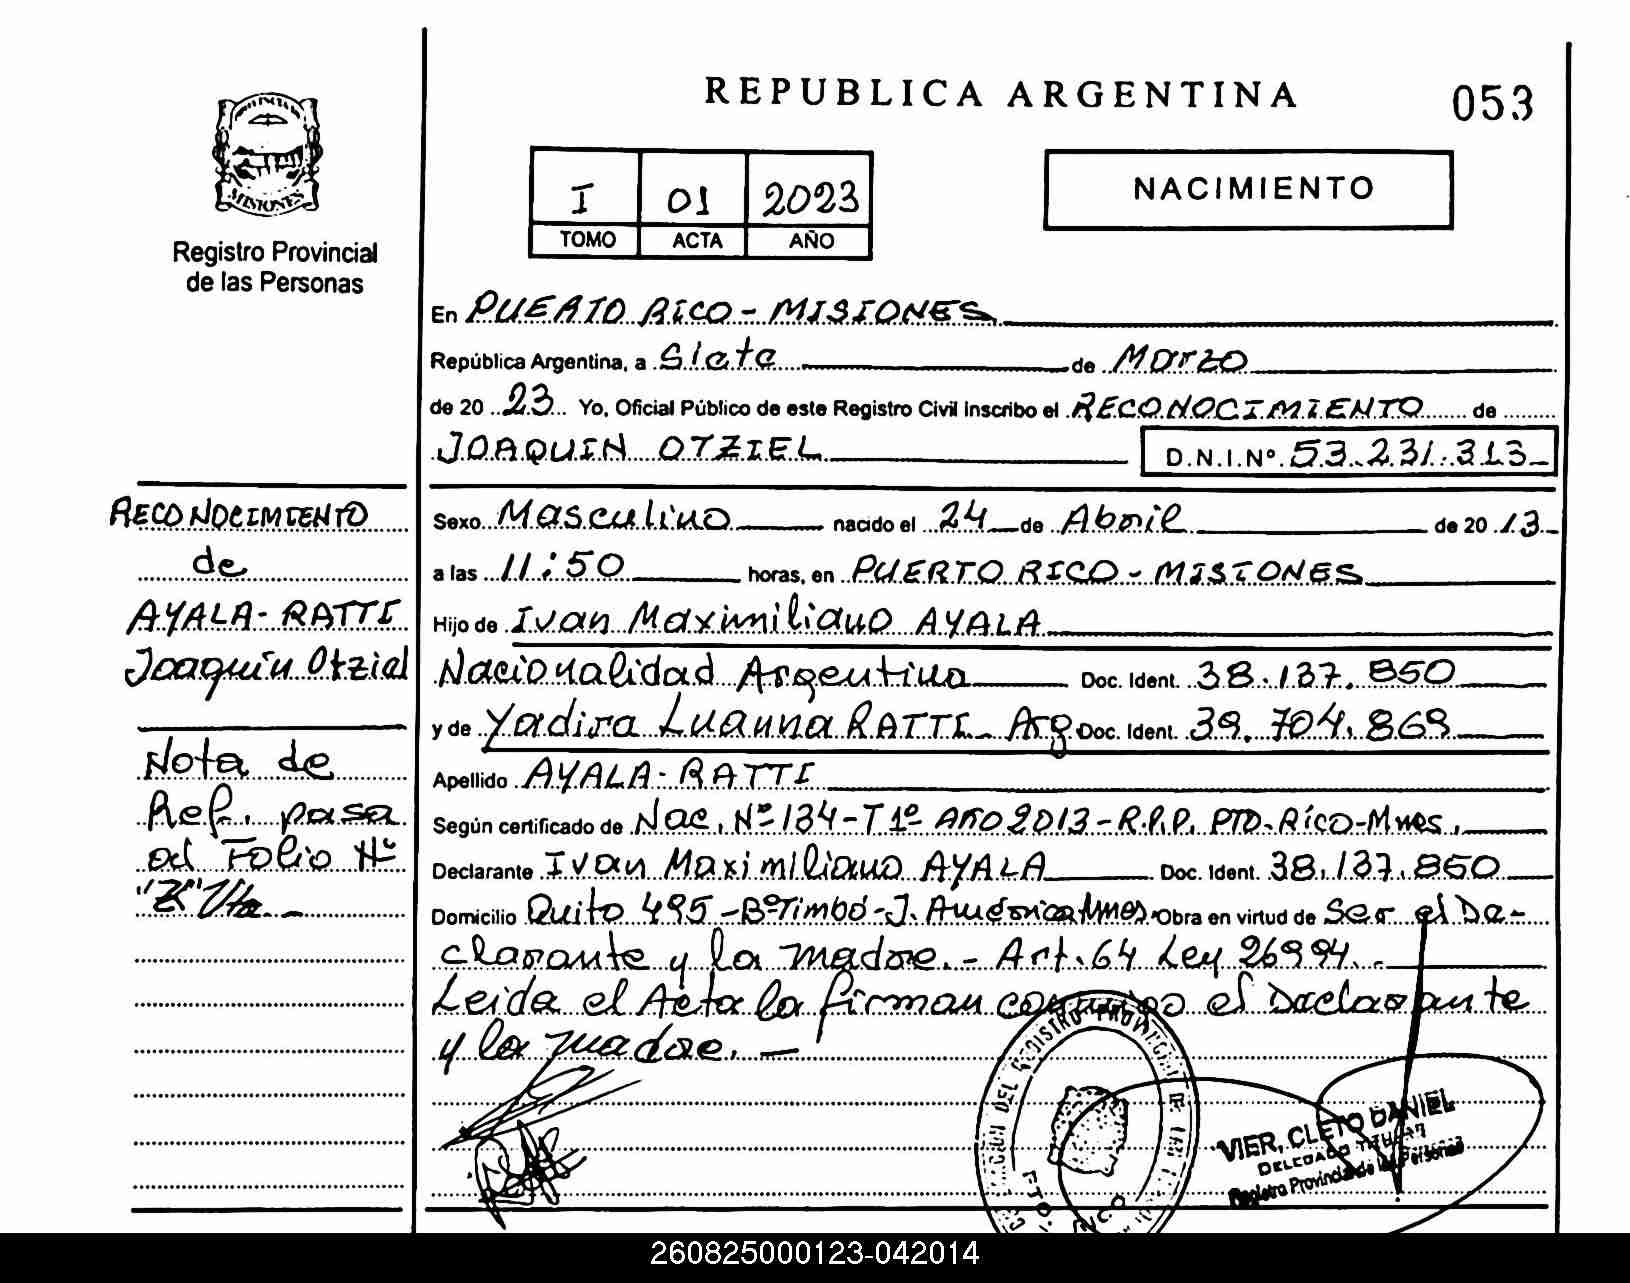 REPUBLICA ARGENTINA
053
MISIONES
Registro Provincial
de las Personas
I 01 2023
TOMO ACTA AÑO
NACIMIENTO
En PUERTO RICO - MISIONES
República Argentina, a Siete de Marzo
de 20 23 Yo, Oficial Público de este Registro Civil Inscribo el RECONOCIMIENTO de
JOAQUIN OTZIEL D.N.I.Nº. 53.231.313
RECONOCIMIENTO
de
AYALA-RATTI
Joaquin Otziel
Nota de
Ref. pasa
al Folio Nº
Vta.-
Sexo Masculino nacido el 24 de Abril de 20 13
a las 11:50 horas, en PUERTO RICO - MISIONES
Hijo de Ivan Maximiliano AYALA
Nacionalidad Argentina Doc. Ident. 38.137.850
y de Yadira Luanna RATTI - Arg Doc. Ident. 39.704.869
Apellido AYALA-RATTI
Según certificado de Nac. Nº 134-T 1º Año 2013-R.P.P. PTO-Rico-Mnes.
Declarante Ivan Maximiliano AYALA Doc. Ident. 38.137.850
Domicilio Quito 495-BºTimbó-J. América Mnes. Obra en virtud de Ser el De-
clarante y la madre.- Art. 64 Ley 26994.-
Leida el Acta la firman conmigo el Declarante
y la madre.-
VIER, CLETO DANIEL
DELEGADO TITULAR
Registro Provincial de las Personas
260825000123-042014